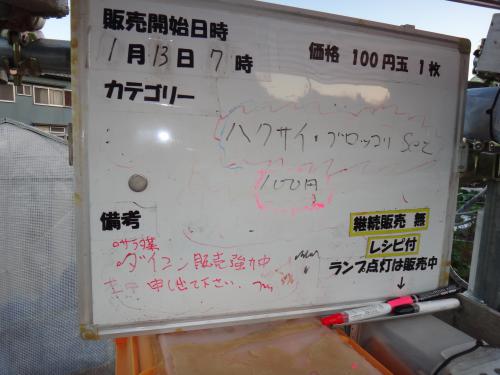 販売開始日時
1月13日7時
価格 100円玉 1枚
カテゴリー
ハクサイ・ブロッコリ
100円
備考
サラダ菜
ダイコン販売強力中
申し出て下さい
継続販売 無
レシピ付
ランプ点灯は販売中
↓